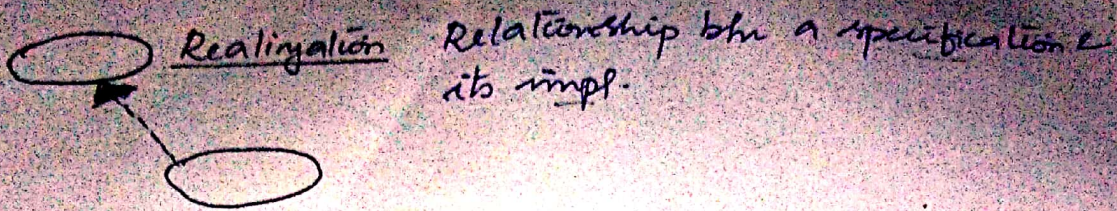 Realization Relationship btn a specification &
its impl.